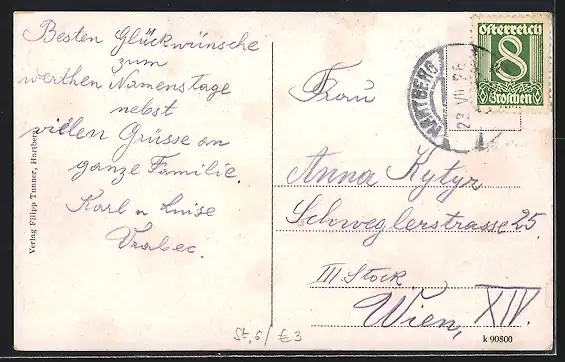 Besten Glückwünsche
zum
werthen Namenstage
nebst
vielen Grüsse an
ganze Familie.
Karl u Luise
Vrabec.
Verlag Filipp Tunner, Hartberg
österreich
8
Groschen
HARTBERG
23 VII 26
Frau
Anna Kytyr
Schweglerstrasse 25.
III. Stock
Wien, XIV.
k 90800
St, 6/ € 3